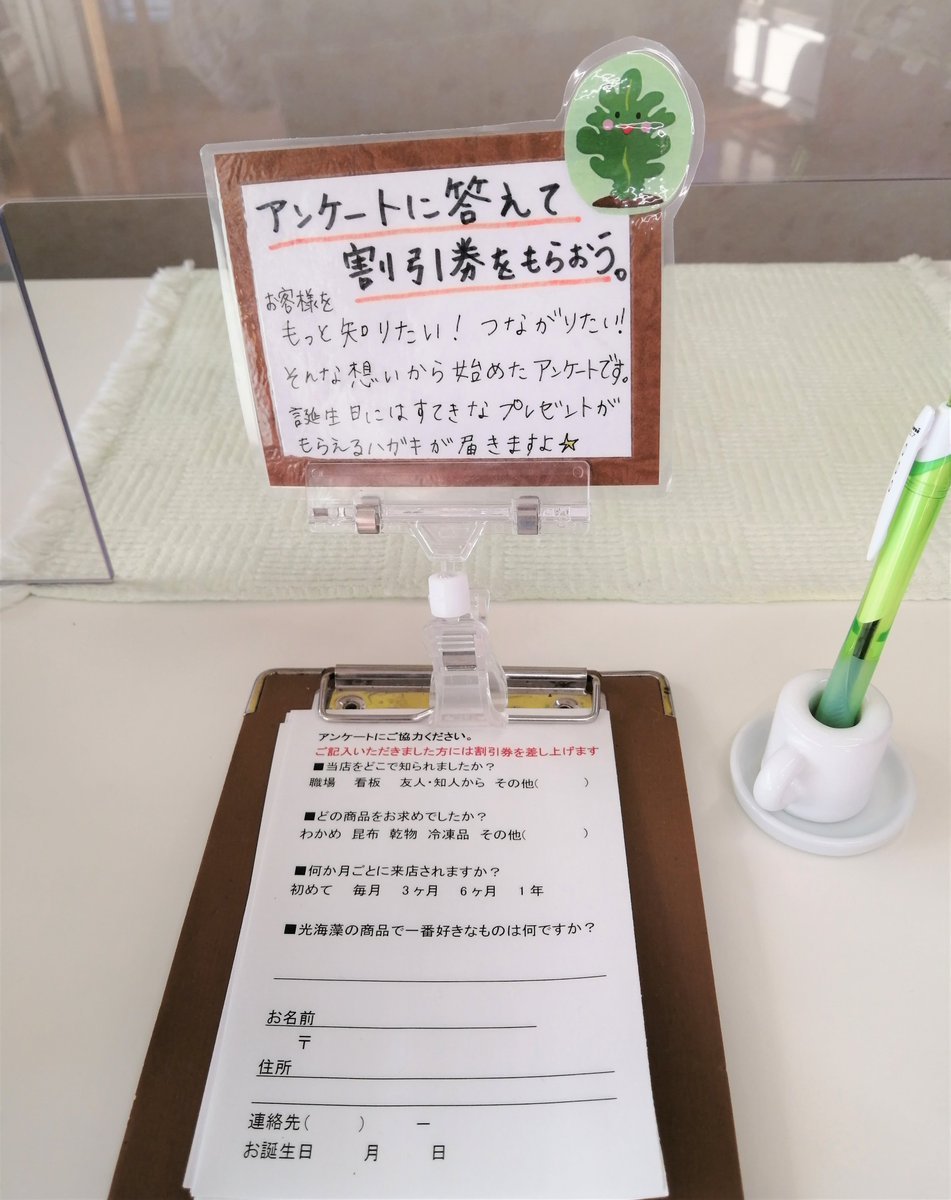 アンケートに答えて
割引券をもらおう。
お客様を
もっと知りたい! つながりたい!
そんな想いから始めたアンケートです。
誕生日にはすてきなプレゼントが
もらえるハガキが届きますよ☆
アンケートにご協力ください。
ご記入いただきました方には割引券を差し上げます
■当店をどこで知られましたか?
職場 看板 友人・知人から その他( )
■どの商品をお求めでしたか?
わかめ 昆布 乾物 冷凍品 その他( )
■何か月ごとに来店されますか?
初めて 毎月 3ヶ月 6ヶ月 1年
■光海藻の商品で一番好きなものは何ですか?
お名前
〒
住所
連絡先( ) ー
お誕生日 月 日